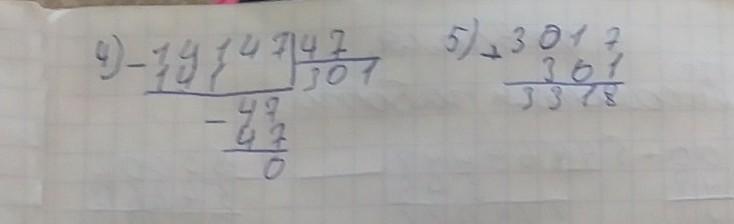 4) - 14147 | 47
141 301
- 47
47
0
5) + 3017
301
3318